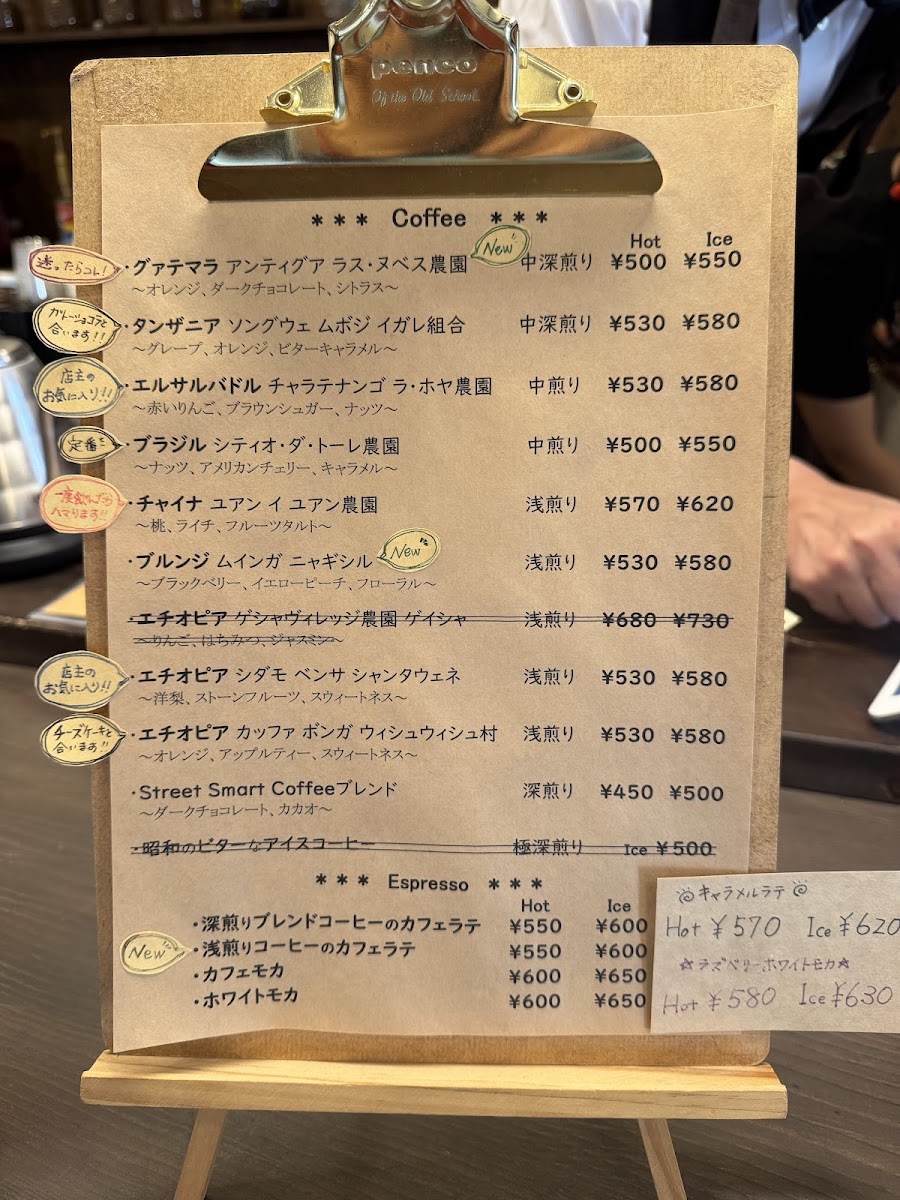 penco
Of the Old School.
*** Coffee ***
Hot Ice
迷ったらコレ! ・グァテマラ アンティグア ラス・ヌベス農園 New 中深煎り ¥500 ¥550
～オレンジ、ダークチョコレート、シトラス～
ガトーショコラと合います!! ・タンザニア ソングウェ ムボジ イガレ組合 中深煎り ¥530 ¥580
～グレープ、オレンジ、ビターキャラメル～
店主のお気に入り!! ・エルサルバドル チャラテナンゴ ラ・ホヤ農園 中煎り ¥530 ¥580
～赤いりんご、ブラウンシュガー、ナッツ～
定番 ・ブラジル シティオ・ダ・トーレ農園 中煎り ¥500 ¥550
～ナッツ、アメリカンチェリー、キャラメル～
一度飲めばハマります!! ・チャイナ ユアン イ ユアン農園 浅煎り ¥570 ¥620
～桃、ライチ、フルーツタルト～
・ブルンジ ムインガ ニャギシル New 浅煎り ¥530 ¥580
～ブラックベリー、イエローピーチ、フローラル～
・エチオピア ゲシャヴィレッジ農園 ゲイシャ 浅煎り ¥680 ¥730
～りんご、はちみつ、ジャスミン～
店主のお気に入り!! ・エチオピア シダモ ベンサ シャンタウェネ 浅煎り ¥530 ¥580
～洋梨、ストーンフルーツ、スウィートネス～
チーズケーキと合います!! ・エチオピア カッファ ボンガ ウィシュウィシュ村 浅煎り ¥530 ¥580
～オレンジ、アップルティー、スウィートネス～
・Street Smart Coffeeブレンド 深煎り ¥450 ¥500
～ダークチョコレート、カカオ～
・昭和のビターなアイスコーヒー 極深煎り Ice ¥500
*** Espresso ***
Hot Ice
・深煎りブレンドコーヒーのカフェラテ ¥550 ¥600
New ・浅煎りコーヒーのカフェラテ ¥550 ¥600
・カフェモカ ¥600 ¥650
・ホワイトモカ ¥600 ¥650
キャラメルラテ
Hot ¥570 Ice ¥620
☆ラズベリーホワイトモカ☆
Hot ¥580 Ice ¥630